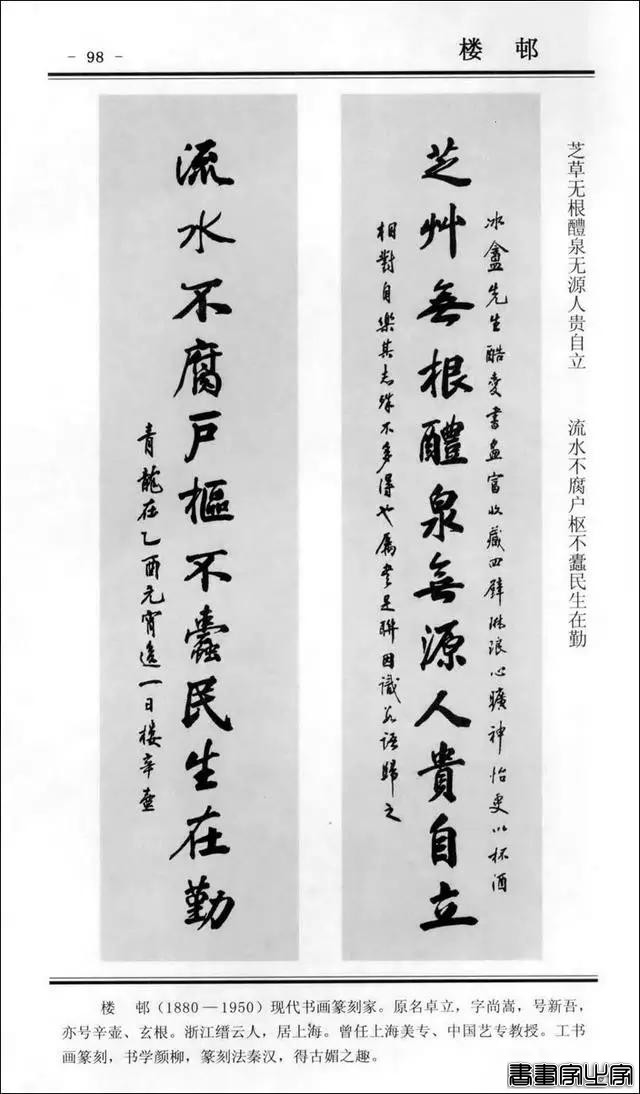 - 98 -
楼 邨
芝草无根醴泉无源人贵自立 流水不腐户枢不蠹民生在勤
冰盦先生酷爱书画富收藏四壁琳琅心曠神怡更以杯酒
芝艸無根醴泉無源人貴自立
相對自樂其志殊不多得也属書是聨因識數語歸之
流水不腐戶樞不蠹民生在勤
青龍在乙酉元宵後一日楼辛壶
楼 邨(1880—1950)现代书画篆刻家。原名卓立，字尚嵩，号新吾，
亦号辛壶、玄根。浙江缙云人，居上海。曾任上海美专、中国艺专教授。工书
画篆刻，书学颜柳，篆刻法秦汉，得古媚之趣。
書畫家必字